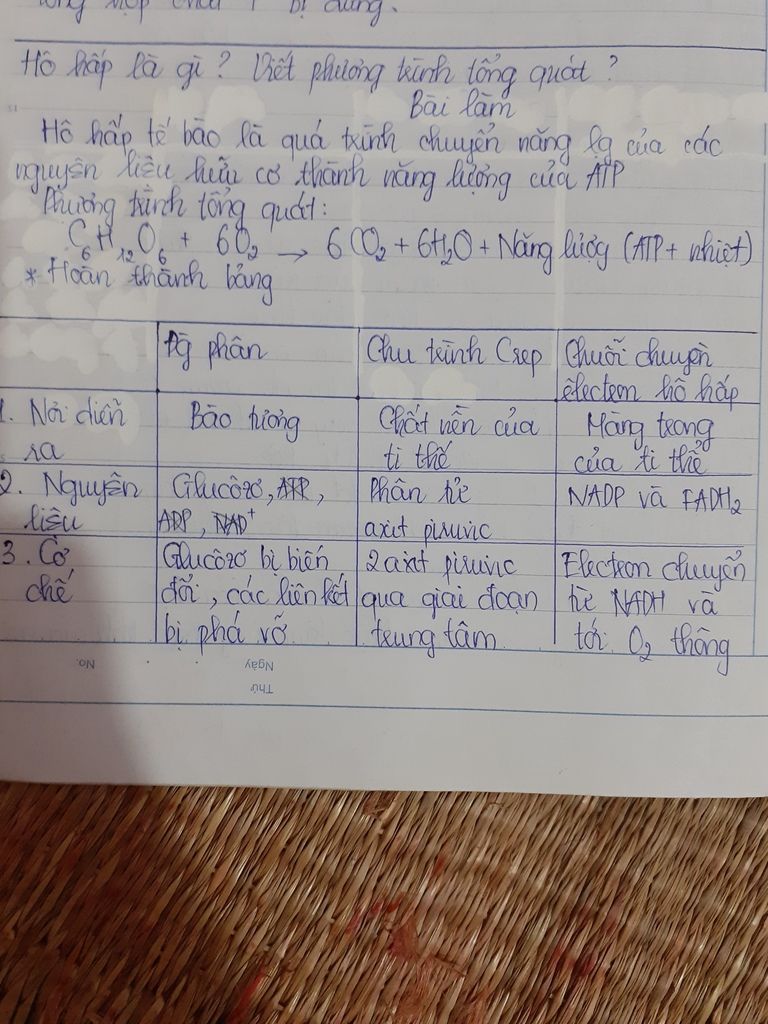 bị dụng.
Hô hấp là gì? Viết phương trình tổng quát?
Bài làm
Hô hấp tế bào là quá trình chuyển năng lg của các
nguyên liệu hữu cơ thành năng lượng của ATP
Phương trình tổng quát:
C6H12O6 + 6O2 → 6CO2 + 6H2O + Năng lượg (ATP + nhiệt)
* Hoàn thành bảng
phân | Chu trình Crep | Chuỗi chuyền
êlectron hô hấp
1. Nơi diễn | Bào tương | Chất nền của | Màng trong
ra | ti thể | của ti thể
2. Nguyên | Glucôzơ, ATP, | Phân tử | NADP và FADH2
liệu | ADP, NAD+ | axit piruvic
3. Cơ | Glucôzơ bị biến | 2 axit piruvic | Electron chuyển
chế | đổi, các liên kết | qua giai đoạn | từ NADH và
bị phá vỡ | trung tâm | tới O2 thông
No.
Ngày
Thứ